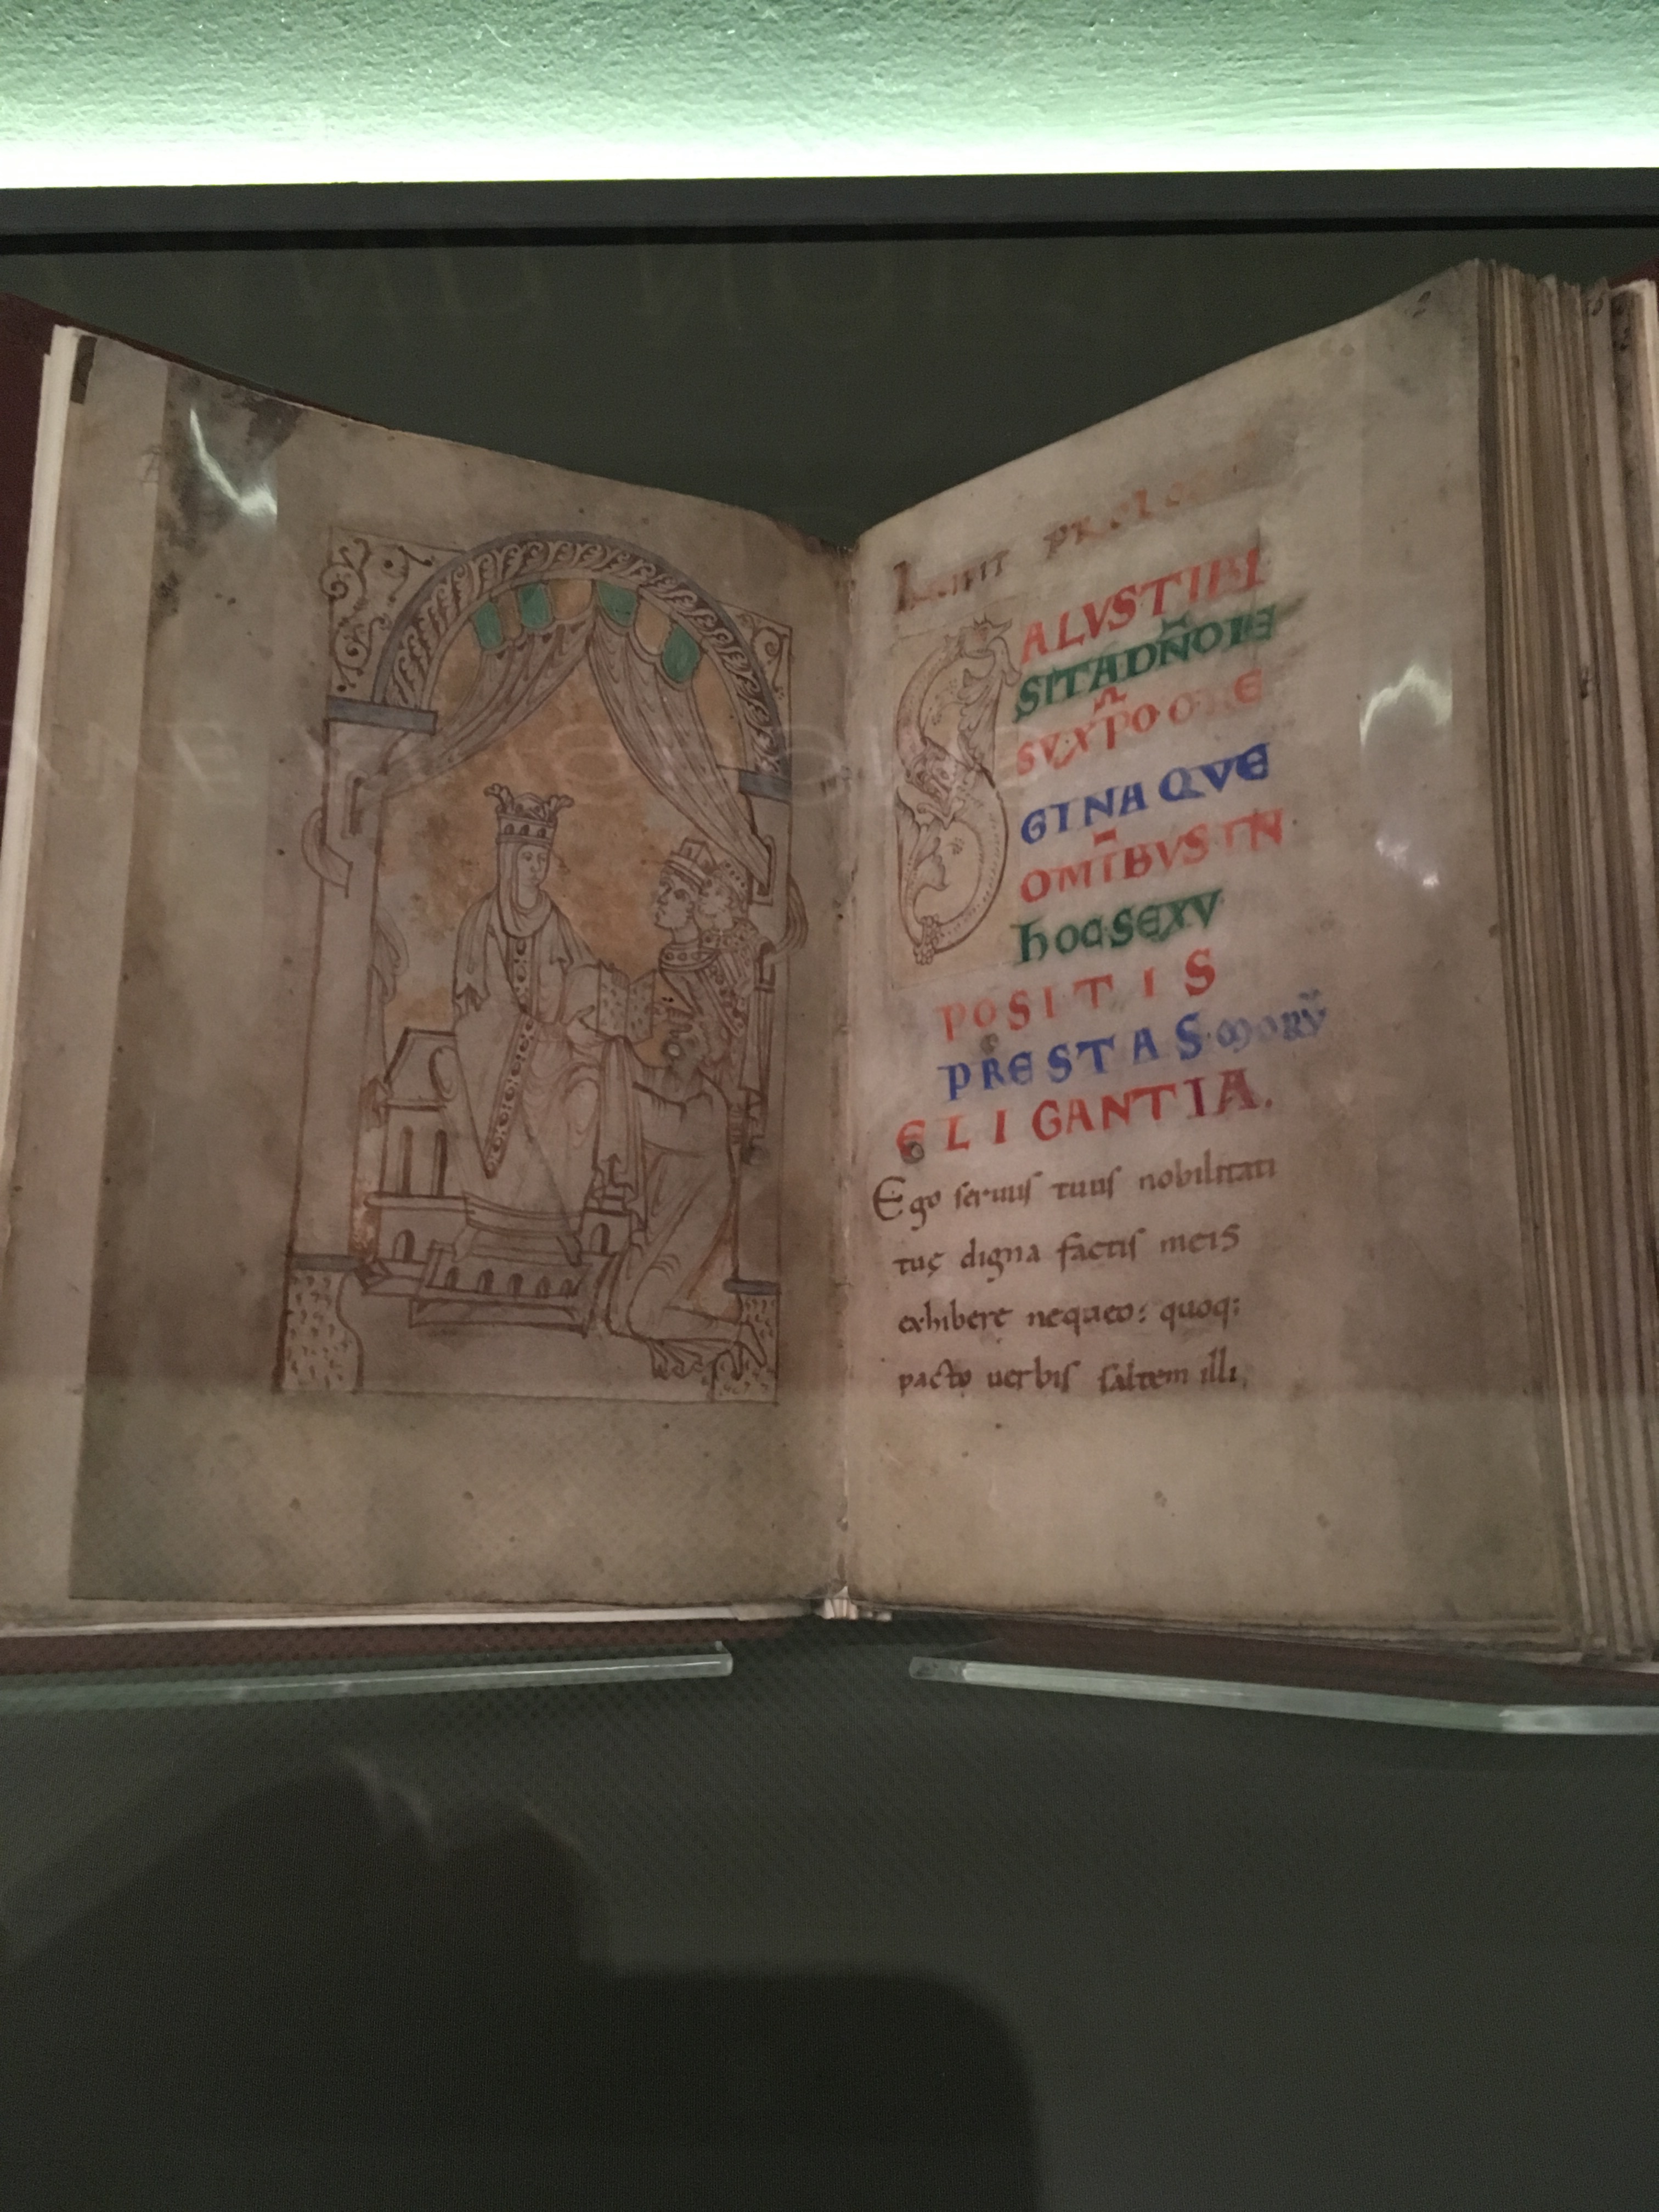 Incipit prologus
SALVSTIBI
SITADN̄OIE
SVXPOORE
GINAQVE
OM̄IBVSIN
hOCSEXV
POSITIS
PRESTASMORṼ
ELIGANTIA.
Ego seruus tuus nobilitati
tuę digna factis meis
exhibere nequeo; quoq;
pacto uerbis saltem illi,